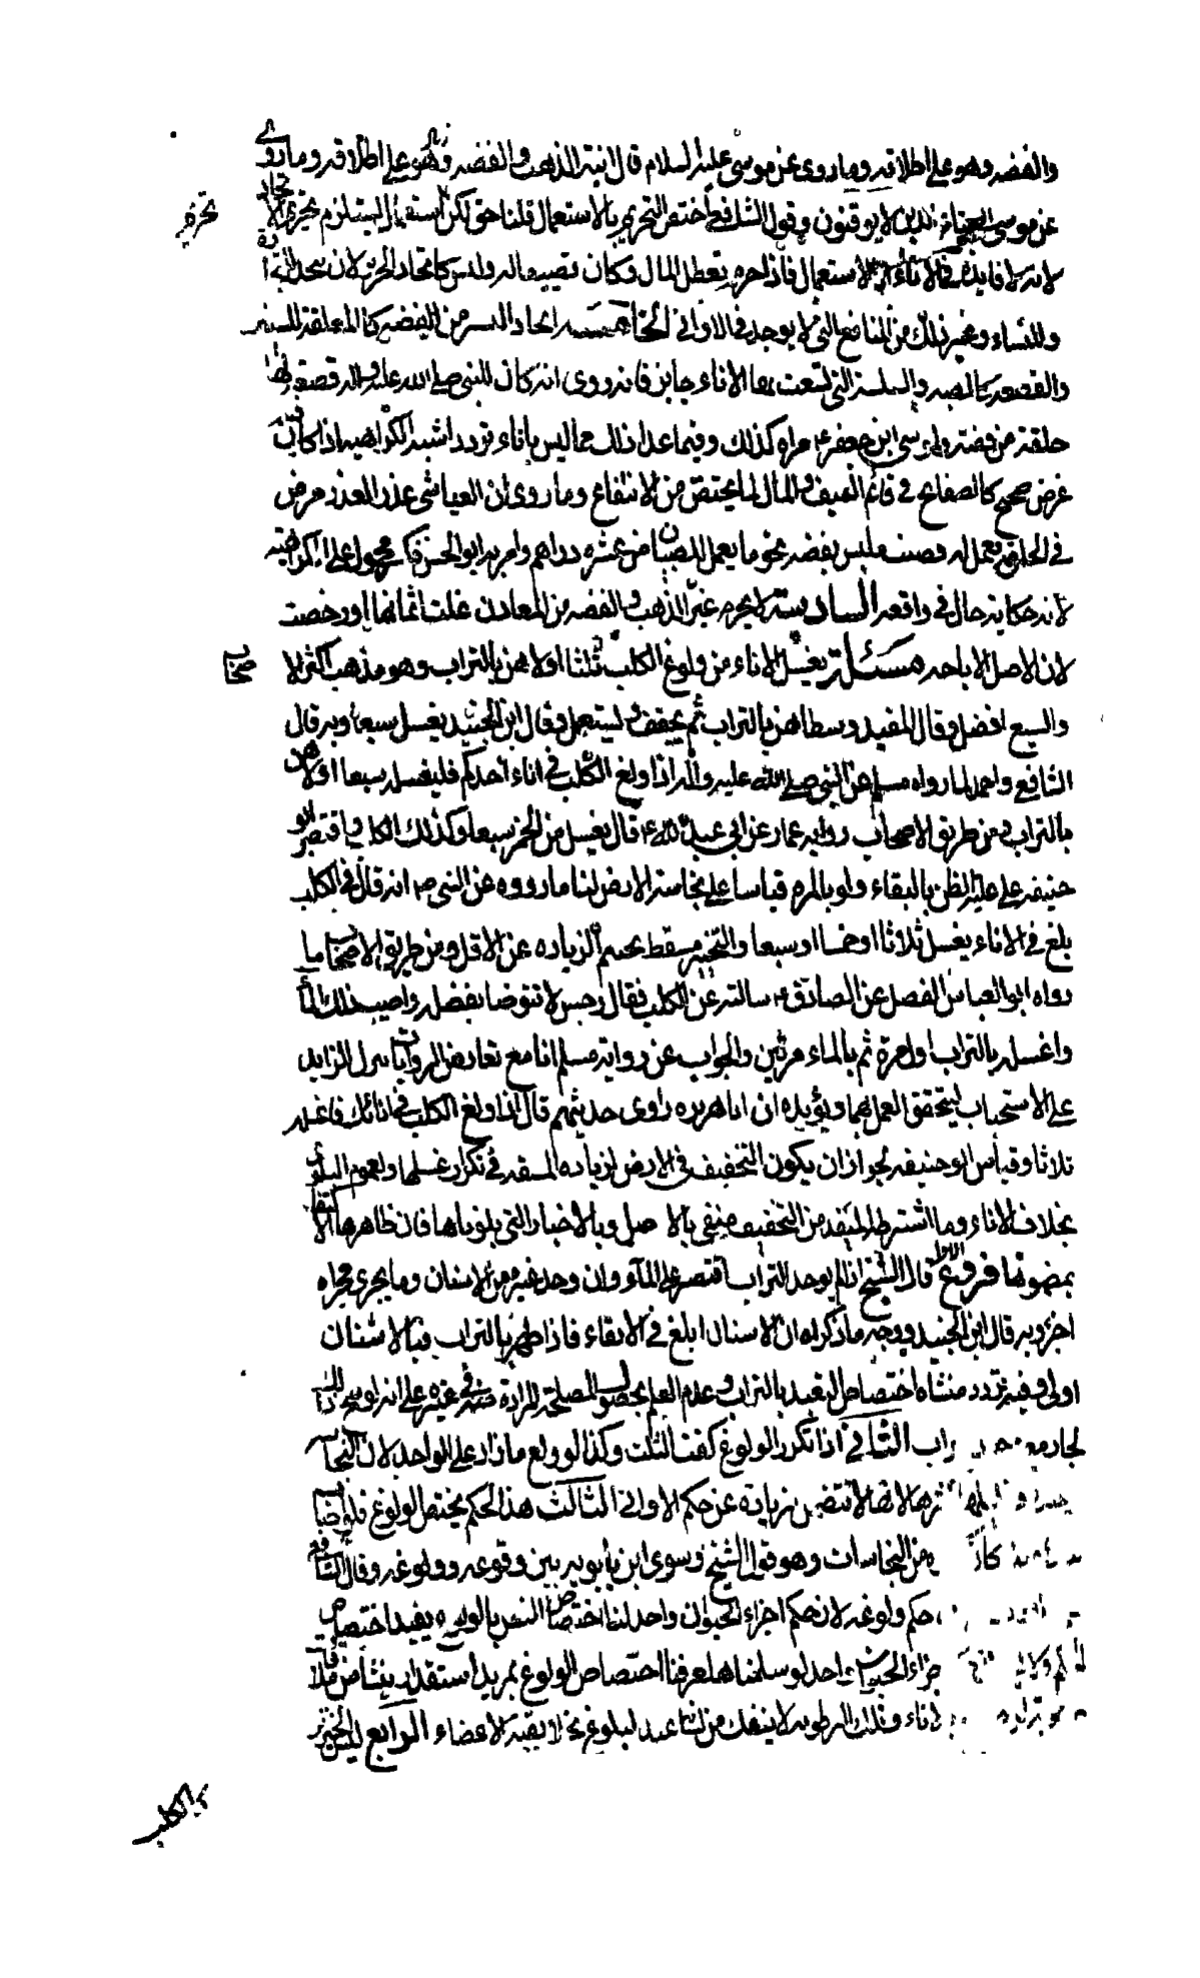 والفضه وهو على اطلاقه وما روى عن موسى عليه السلام قال انية الذهب والفضه وهو على اطلاقه وما روى
عن موسى الذين لا يوقنون وقول الشافعي اختص التحريم بالاستعمال قلنا حق لكن يستلزم تحريم الاتخاذ
لانه لا فايدة في الاناء الا الاستعمال فاذا حرم تعطل المال وكان تضييعا له وليس كاتخاذ الحرير لان
وللنساء وغير ذلك من المنافع التي لا يوجد في الاواني الخامسه اتخاذ اليسير من الفضه كالمعلقة للسيف
والقصعه كالضبه والسلسة التي تشعب بها الاناء جايز فانه روى انه كان للنبي صلى الله عليه واله قصعة فيها
حلقة من فضة ولموسى ابن جعفر ع مراه كذلك وفيما عدا ذلك مما ليس باناء تردد اشبه الكراهيه اذا كان
غرض صحيح كالصفايح في قائم السيف والمال لما يختص من الانتفاع وما روى ان العباس عذر العذر مرض
في الحلق فعمل له قصب ملبس بفضه نحو ما يعمل للصبيان من عشره دراهم وامر به ابو الحسن فكسر محمول على الكراهية
لانه حكاية حال في واقعه السادسة لا يحرم غير الذهب والفضه من المعادن غلت اثمانها او رخصت
لان الاصل الاباحه مسئلة يغسل الاناء من ولوغ الكلب ثلثا اولاهن بالتراب وهو مذهب اكثر الاصحاب
والسبع افضل وقال المفيد وسطاهن بالتراب ثم يجفف ويستعمل وقال ابن الجنيد يغسل سبعا وبه قال
الشافعي واحمد لما رواه مسلم عن النبي صلى الله عليه واله اذا ولغ الكلب في اناء احدكم فليغسله سبعا اولاهن
بالتراب ومن طريق الاصحاب رواية عمار عن ابي عبد الله ع قال يغسل من الخمر سبعا وكذلك الكلب واقتصر ابو
حنيفه على غلبة الظن بالبقاء ولو بالمره قياسا على نجاسة الارض لنا ما رووه عن النبي ص انه قال في الكلب
يلغ في الاناء يغسل ثلاثا او خمسا او سبعا والتخيير مسقط تحتم الزياده عن الاقل ومن طريق الاصحاب ما
رواه ابو العباس الفضل عن الصادق ع سالته عن الكلب فقال رجس لا تتوضا بفضله واصبب ذلك الماء
واغسله بالتراب اول مرة ثم بالماء مرتين والجواب عن رواية مسلم انا مع تعارض الروايات ننزل الزايد
على الاستحباب ليتحقق العمل بهما ويؤيده ان ابا هريره راوى حديثهم قال اذا ولغ الكلب في انائك فاغسله
ثلاثا وقياس ابو حنيفه لجواز ان يكون التخفيف في الارض لزياده المشقه في تكرار غسلها ولعموم البلوى
بخلاف الاناء وما اشترطه المفيد من التخفيف منفى بالاصل وبالاخبار التي تلوناها فان ظاهرها الاكتفاء
بمضمونها فروع الاول قال الشيخ اذا لم يوجد التراب اقتصر على الماء وان وجد غيره من الاشنان وما يجرى مجراه
اجزء وبه قال ابن الجنيد ووجه ما ذكراه ان الاشنان ابلغ في الانقاء فاذا طهر بالتراب فبالاشنان
اولى وفيه تردد منشاه اختصاص التعبد بالتراب وعدم العلم بحصول المصلحة المرادة منه في غيره على انه لو صح ذلك
لجاز مع وجود التراب الثاني اذا تكرر الولوغ كفت الثلث وكذا لو ولغ ما زاد على الواحد لان النجاسه
لانها لا تتضمن زيادة عن حكم الاولى الثالث هذا الحكم يختص الولوغ فلو اصاب
من النجاسات وهو قول الشيخ وسوى ابن بابويه بين وقوعه وولوغه وقال الشافعي
حكم ولوغه لان حكم اجزاء الحيوان واحد لنا اختصاص النص بالولوغ يفيد اختصاص
اجزاء الحيوان واحد لو سلمناه لعرفنا اختصاص الولوغ بمزيد استقذار ينشأ من ملاقات
الاناء وتلك الرطوبه لا ينفك من لسانه عند الولوغ بخلاف بقية الاعضاء الرابع ليس الخنزير
كالكلب